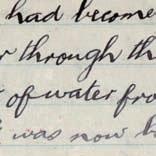 had become
through th
of water fro
was now b